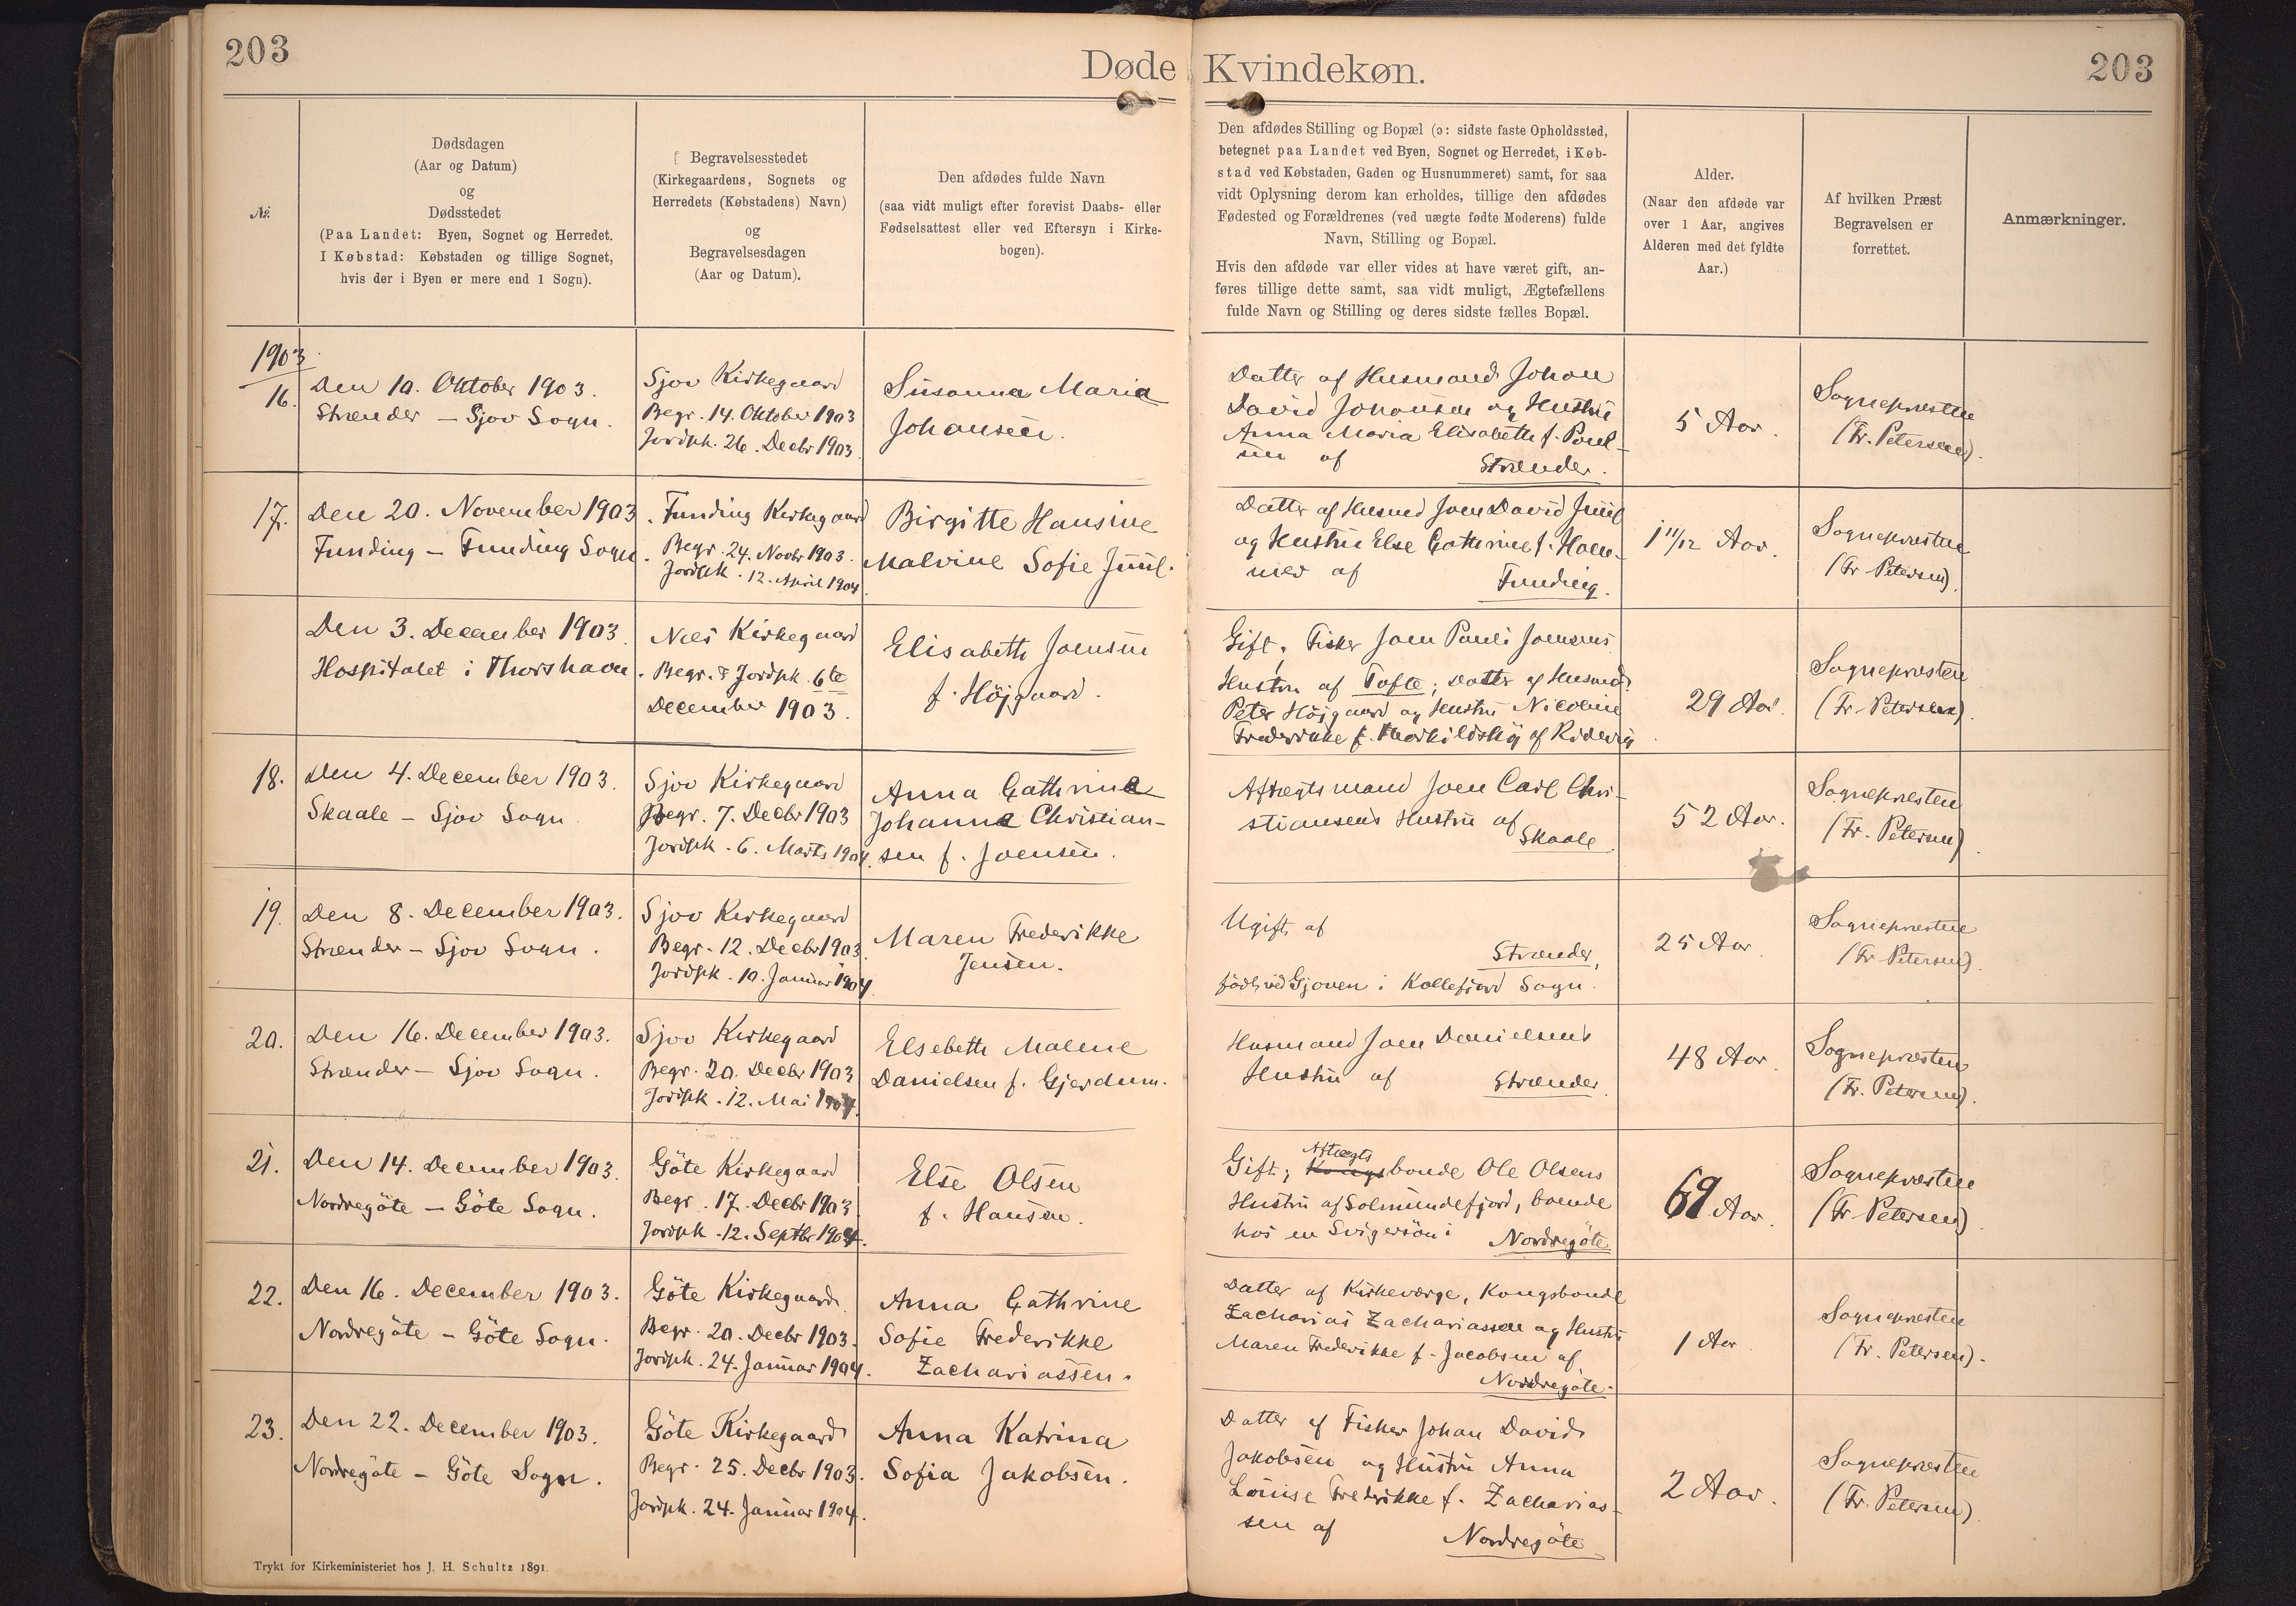 203
Døde Kvindekøn.
203
№
Dødsdagen
(Aar og Datum)
og
Dødsstedet
(Paa Landet: Byen, Sognet og Herredet.
I Købstad: Købstaden og tillige Sognet,
hvis der i Byen er mere end 1 Sogn).
Begravelsesstedet
(Kirkegaardens, Sognets og
Herredets (Købstadens) Navn)
og
Begravelsesdagen
(Aar og Datum).
Den afdødes fulde Navn
(saa vidt muligt efter forevist Daabs- eller
Fødselsattest eller ved Eftersyn i Kirke-
bogen).
Den afdødes Stilling og Bopæl (ɔ: sidste faste Opholdssted,
betegnet paa Landet ved Byen, Sognet og Herredet, i Køb-
stad ved Købstaden, Gaden og Husnummeret) samt, for saa
vidt Oplysning derom kan erholdes, tillige den afdødes
Fødested og Forældrenes (ved uægte fødte Moderens) fulde
Navn, Stilling og Bopæl.
Hvis den afdøde var eller vides at have været gift, an-
føres tillige dette samt, saa vidt muligt, Ægtefællens
fulde Navn og Stilling og deres sidste fælles Bopæl.
Alder.
(Naar den afdøde var
over 1 Aar, angives
Alderen med det fyldte
Aar.)
Af hvilken Præst
Begravelsen er
forrettet.
Anmærkninger.
1903
16.
Den 10. Oktober 1903.
Strænder – Sjov Sogn.
Sjov Kirkegaard
Begr. 14. Oktober 1903
Jordpk. 26. Decbr 1903.
Susanna Maria
Johansen.
Datter af Husmand Johan
David Johansen og Hustru
Anna Maria Elisabeth f. Poul-
sen af Strænder.
5 Aar.
Sognepræsten
(Fr. Petersen).
17.
Den 20. November 1903.
Funding – Funding Sogn.
Funding Kirkegaard
Begr. 24. Novbr 1903.
Jordpk. 12. April 1904.
Birgitte Hansine
Malvine Sofie Juul.
Datter af Husmd Joen David Juul
og Hustru Else Cathrine f. Ham-
mer af Funding.
1 11/12 Aar.
Sognepræsten
(Fr Petersen).
Den 3. December 1903.
Hospitalet i Thorshavn.
Næs Kirkegaard
Begr. & Jordpk. 6te
December 1903.
Elisabeth Joensen
f. Höjgaard.
Gift; Fisker Joen Pauli Joensens
Hustru af Tofte; Datter af Husmd.
Peter Höjgaard og Hustru Nicoline
Frederikke f. Thorkildshöj af Ridevig.
29 Aar.
Sognepræsten
(Fr. Petersen).
18.
Den 4. December 1903.
Skaale – Sjov Sogn.
Sjov Kirkegaard
Begr. 7. Decbr 1903
Jordpk. 6. Marts 1904.
Anna Cathrine
Johanne Christian-
sen f. Joensen.
Aftægtsmand Joen Carl Chri-
stiansens Hustru af Skaale.
52 Aar.
Sognepræsten
(Fr. Petersen).
19.
Den 8. December 1903.
Strænder – Sjov Sogn.
Sjov Kirkegaard
Begr. 12. Decbr 1903.
Jordpk. 10. Januar 1904.
Maren Frederikke
Jensen.
Ugift, af
Strænder,
født ved Gjoven i Kollefjord Sogn.
25 Aar.
Sognepræsten
(Fr Petersen).
20.
Den 16. December 1903.
Strænder – Sjov Sogn.
Sjov Kirkegaard
Begr. 20. Decbr 1903
Jordpk. 12. Mai 1904.
Elsebeth Malene
Danielsen f. Gjerdum.
Husmand Joen Danielsens
Hustru af Strænder.
48 Aar.
Sognepræsten
(Fr. Petersen).
21.
Den 14. December 1903.
Nordregöte – Göte Sogn.
Göte Kirkegaard
Begr. 17. Decbr 1903.
Jordpk. 12. Septbr 1904.
Else Olsen
f. Hansen.
Aftægts
Gift; Kongsbonde Ole Olsens
Hustru af Solmundefjord, boende
hos en Svigersön i Nordregöte
69 Aar.
Sognepræsten
(Fr Petersen).
22.
Den 16. December 1903.
Nordregöte – Göte Sogn.
Göte Kirkegaard.
Begr. 20. Decbr 1903.
Jordpk. 24. Januar 1904.
Anna Cathrine
Sofie Frederikke
Zachariassen.
Datter af Kirkeværge, Kongsbonde
Zacharias Zachariassen og Hustru
Maren Frederikke f. Jacobsen af
Nordregöte.
1 Aar
Sognepræsten
(Fr. Petersen).
23.
Den 22. December 1903.
Nordregöte – Göte Sogn.
Göte Kirkegaard
Begr. 25. Decbr 1903.
Jordpk. 24. Januar 1904.
Anna Katrina
Sofia Jakobsen.
Datter af Fisker Johan David
Jakobsen og Hustru Anna
Louise Frederikke f. Zacharias-
sen af Nordregöte
2 Aar.
Sognepræsten
(Fr. Petersen).
Trykt for Kirkeministeriet hos J. H. Schultz 1891.